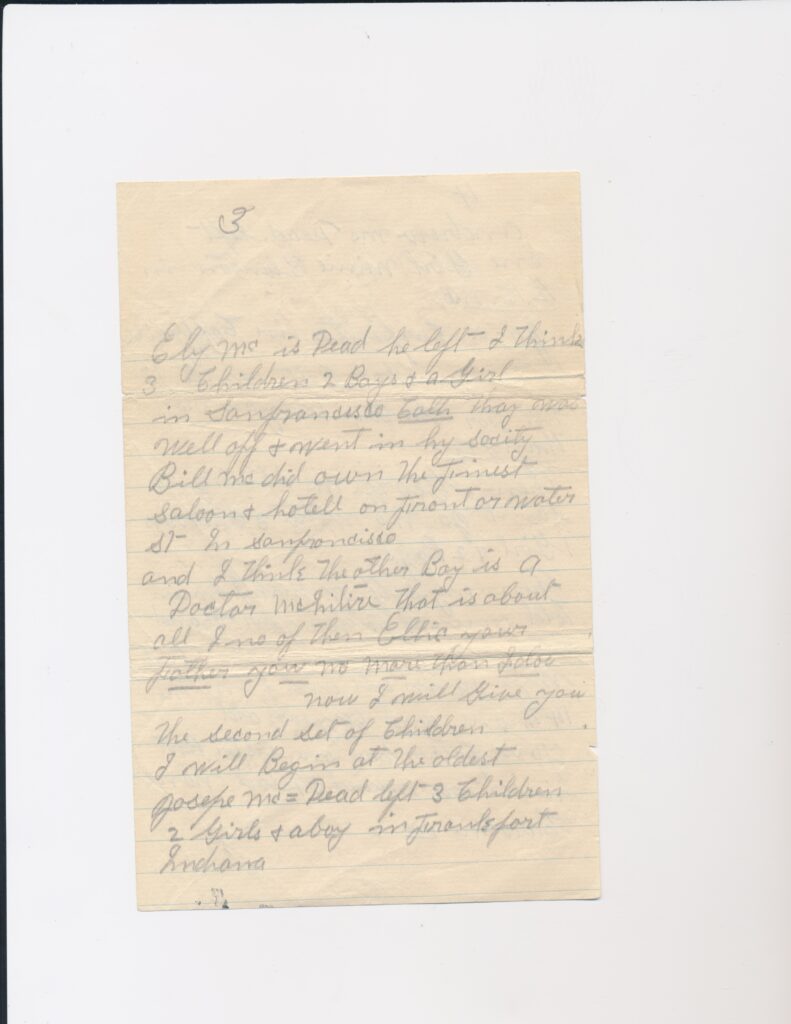 3
Ely Mc is Dead he left I think
3 Children 2 Boys & a Girl
in Sanfrancisco Calh thay was
well off & went in hy socity
Bill Mc did own the Finest
saloon & hotell on Front or water
St In sanfrancisco
and I think the other Boy is a
Doctor that is about
all I no of then Ellie your
Father you no more than I doe
now I will Give you
the second set of Children
I will Begin at the oldest
Josepe Mc = Dead left 3 Children
2 Girls & a boy in Frankfort
Indiana